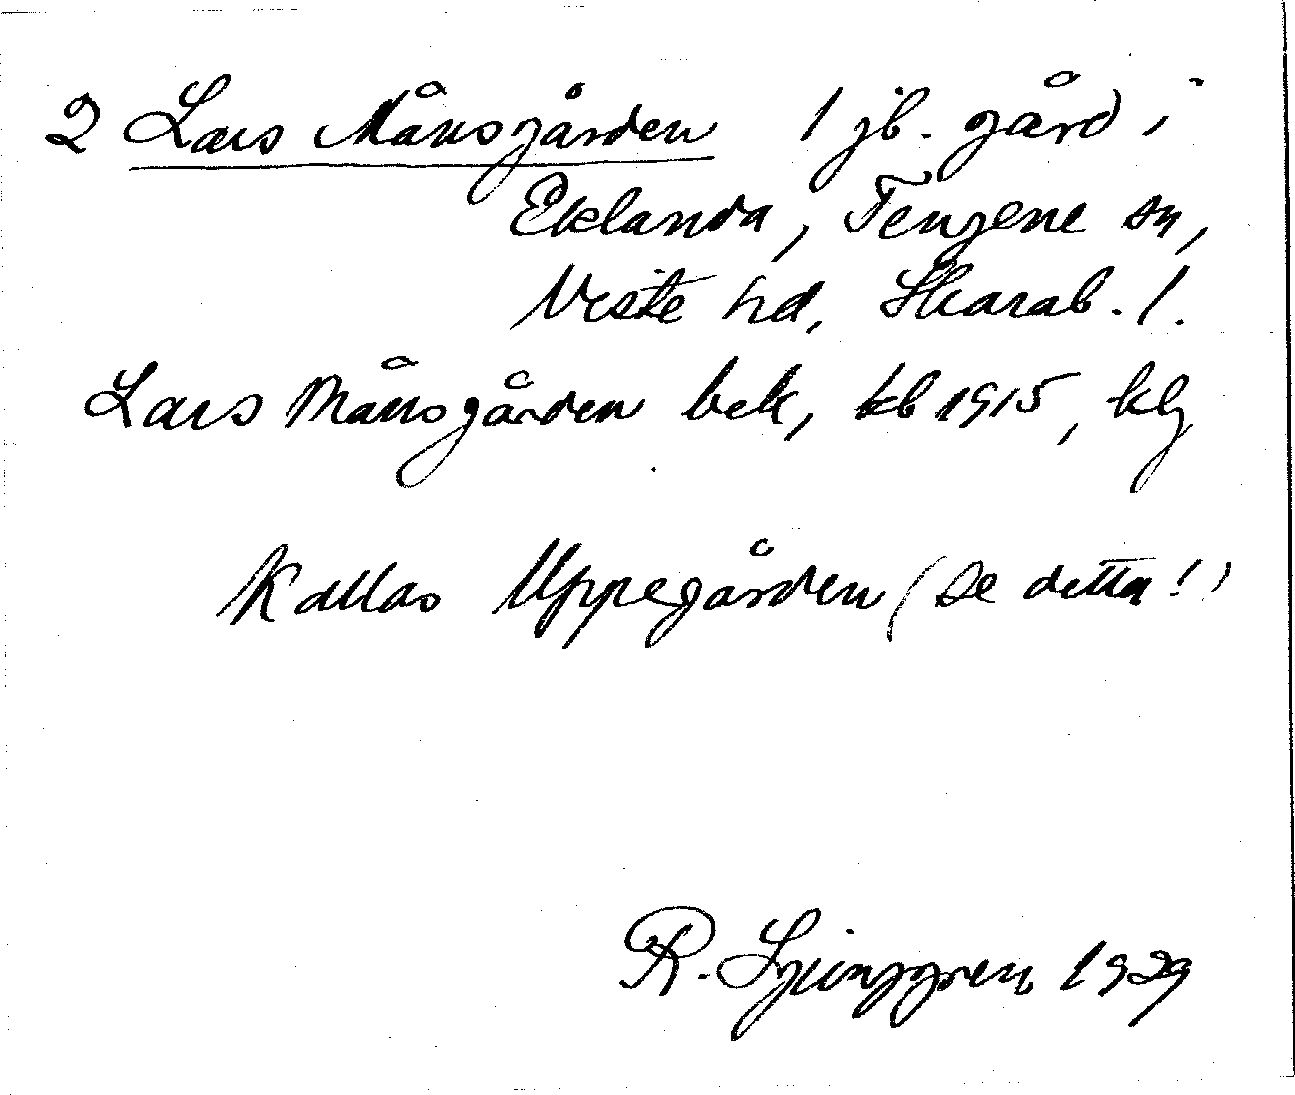 2 Lars Månsgården 1 jb. gård i
Eklanda, Tengene sn,
Viste hd, Skarab. l.
Lars Månsgården bek, kb 1915, klg
Kallas Uppegården (se detta!)
R. Ljunggren 1929